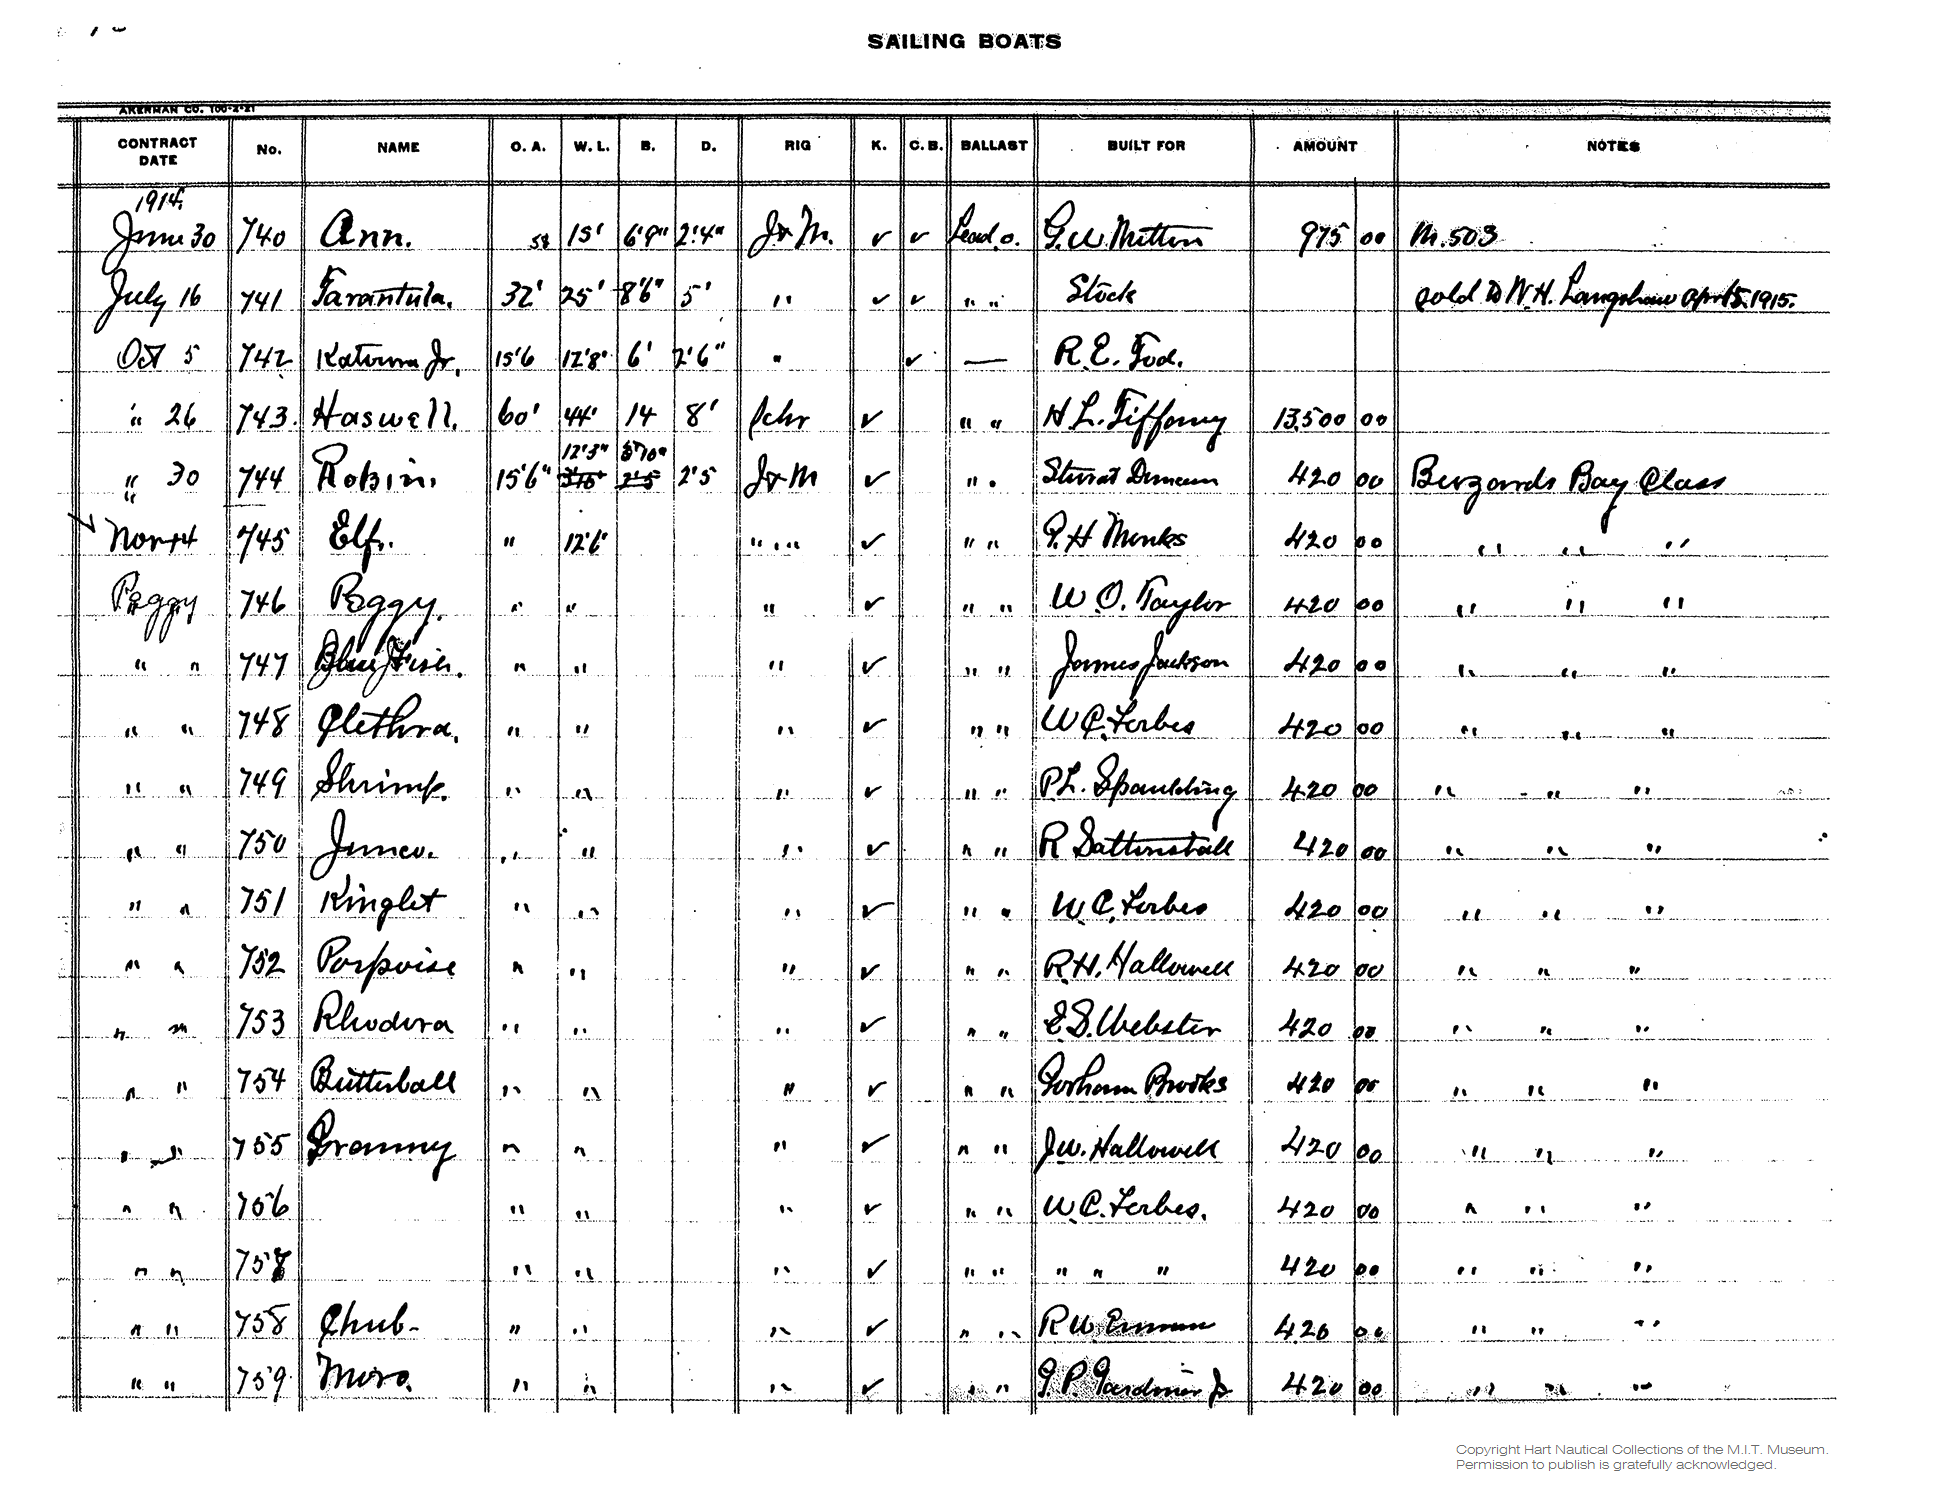 SAILING BOATS
AKERMAN CO. 100-2-21
CONTRACT DATE No. NAME O. A. W. L. B. D. RIG K. C. B. BALLAST BUILT FOR AMOUNT NOTES
1914.
June 30 740 Ann. 15' 6'9" 2'4" J & M. ✓ ✓ Lead o. 975 00 M.503
July 16 741 Tarantula. 32' 25' 8'6" 5' " ✓ ✓ " " Stock sold to W.H. Langshaw April 5. 1915.
Oct 5 742 Katrina Jr. 15'6 12'8" 6' 2'6" " ✓ — R. E. Tod.
" 26 743. Haswell. 60' 44' 14 8' Schr ✓ " " H L. Tiffany 13,500 00
12'3" 5'10"
" 30 744 Robin. 15'6" 2'5 J & M ✓ " " Stuart Duncan 420 00 Buzzards Bay Class
" Nov 14 745 Elf. " 12'6" " " " ✓ " " G. H Monks 420 00 " " "
Peggy 746 Peggy. " " " ✓ " " W. O. Taylor 420 00 " " "
" " 747 Blue Fish. " " " ✓ " " James Jackson 420 00 " " "
" " 748 Clethra. " " " ✓ " " W C. Forbes 420 00 " " "
" " 749 Shrimp. " " " ✓ " " P.L. Spaulding 420 00 " " "
" " 750 Junco. " " " ✓ " " R Saltonstall 420 00 " " "
" " 751 Kinglet " " " ✓ " " W. C. Forbes 420 00 " " "
" " 752 Porpoise " " " ✓ " " R.H. Hallowell 420 00 " " "
" " 753 Rhodora " " " ✓ " " E S. Webster 420 00 " " "
" " 754 Butterball " " " ✓ " " Gorham Brooks 420 00 " " "
" " 755 Granny " " " ✓ " " J.W. Hallowell 420 00 " " "
" " 756 " " " ✓ " " W. C. Forbes. 420 00 " " "
" " " " " ✓ " " " " " 420 00 " " "
" " 758 Chub- " " " ✓ " " R W. Emmons 420 00 " " "
" " 759 Moro. " " " ✓ " " G. P. Gardiner Jr 420 00 " " "
Copyright Hart Nautical Collections of the M.I.T. Museum.
Permission to publish is gratefully acknowledged.